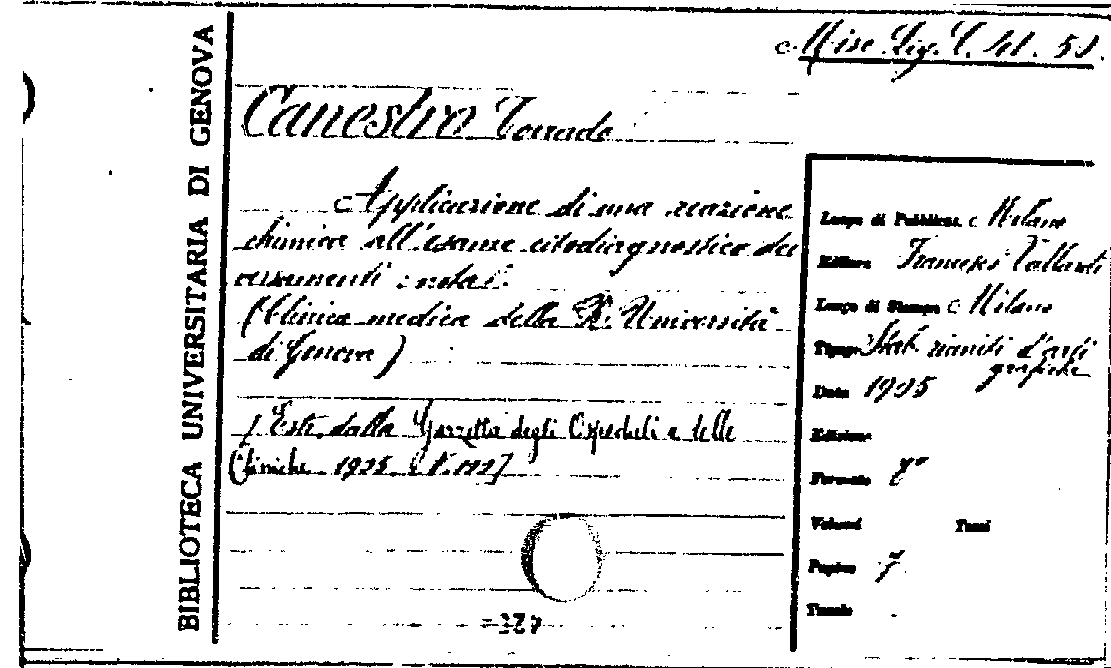 Misc. Lig. C. 41. 52.
BIBLIOTECA UNIVERSITARIA DI GENOVA
Canestro Corrado
Applicazione di una reazione
chimica all'esame citodiagnostico dei
versamenti : nota.
(Clinica medica della R. Università
di Genova)
[Estr. dalla Gazzetta degli Ospedali e delle
Cliniche 1905
Luogo di Pubblicaz. Milano
Editore Francesco Vallardi
Luogo di Stampa Milano
Tipogr. Stab. riuniti d'arti
grafiche
Data 1905
Edizione
Formato 8°
Volumi Tomi
Pagine 7
Tavole